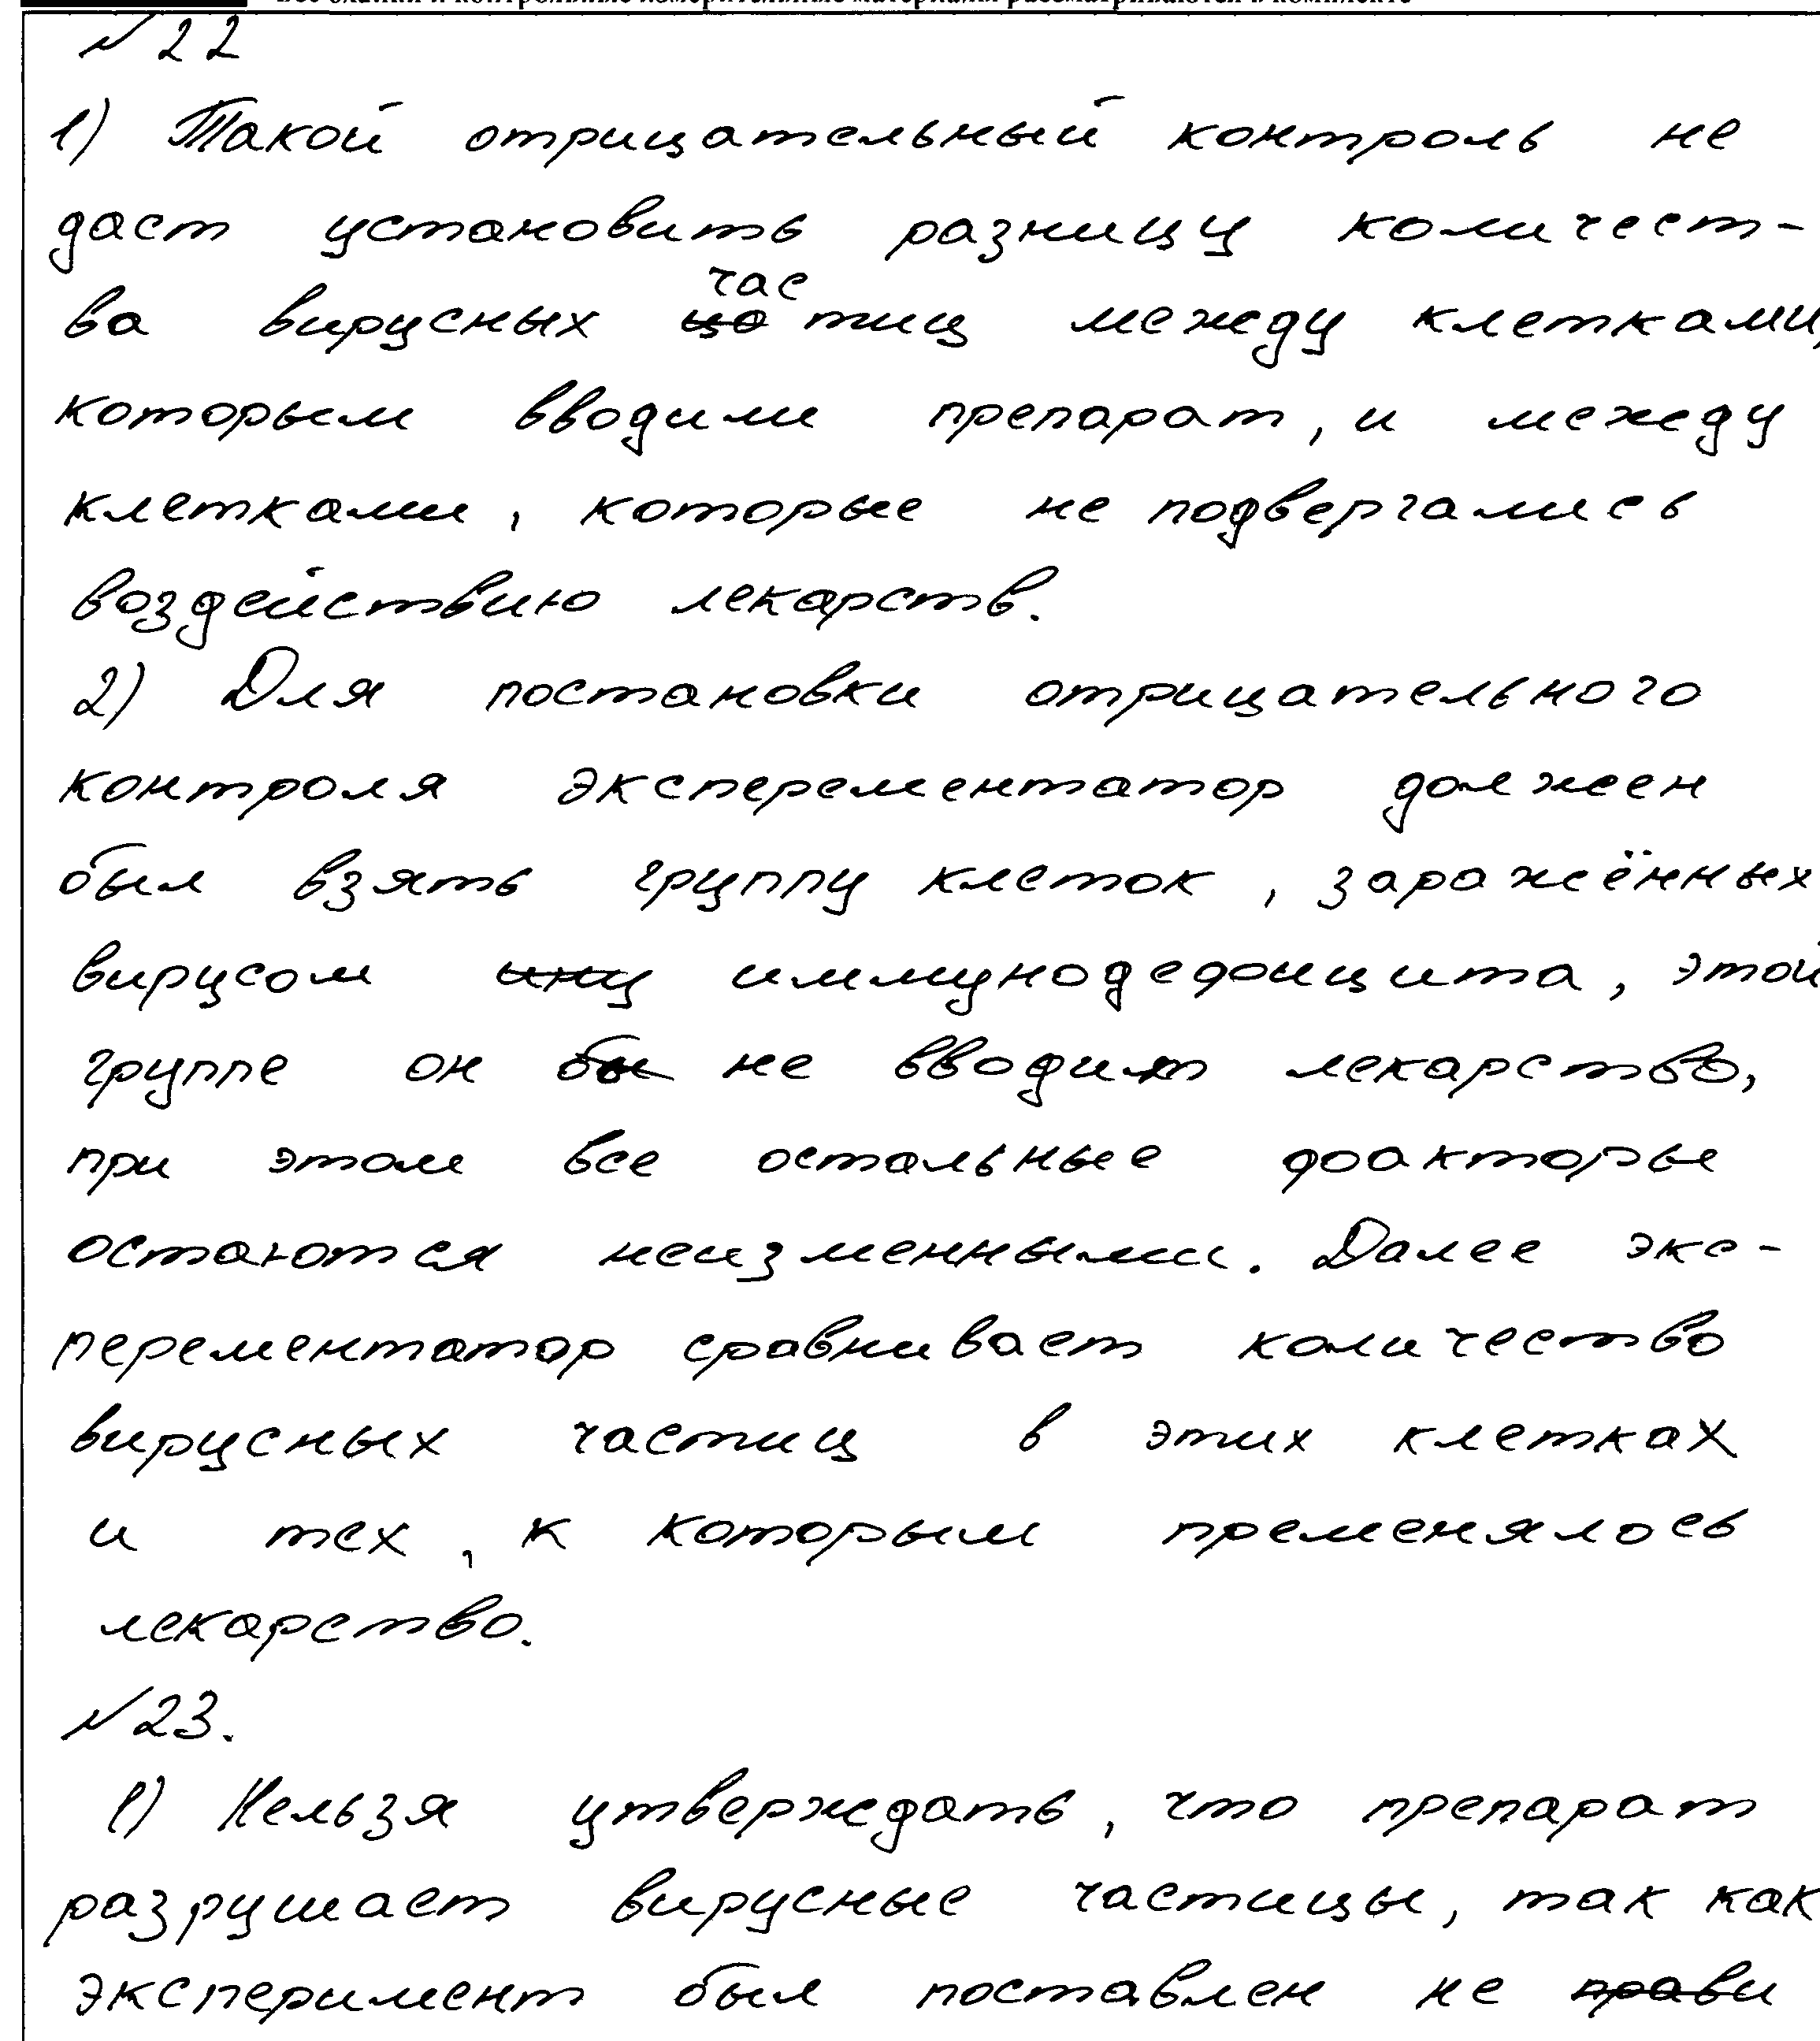 все бланки и контрольные измерительные материалы рассматриваются в комплекте
№22
1) Такой отрицательный контроль не
даст установить разницу количест-
ва вирусных частиц между клетками,
которым вводили препарат, и между
клетками, которые не подвергались
воздействию лекарств.
2) Для постановки отрицательного
контроля эксперементатор должен
был взять группу клеток, заражённых
вирусом иммунодефицита, этой
группе он не вводит лекарство,
при этом все остальные факторы
остаются неизменными. Далее экс-
перементатор сравнивает количество
вирусных частиц в этих клетках
и тех, к которым пременялось
лекарство.
№23.
1) Нельзя утверждать, что препарат
разрушает вирусные частицы, так как
эксперимент был поставлен не